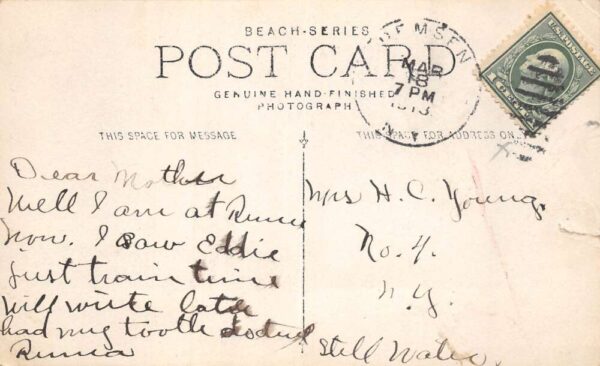 BEACH-SERIES
POST CARD
GENUINE HAND-FINISHED
PHOTOGRAPH
REMSEN
MAR
18
7 PM
1913
N.Y.
U.S. POSTAGE
THIS SPACE FOR MESSAGE
THIS SPACE FOR ADDRESS ONLY
Dear Mother
Well I am at
now. I saw Eddie
just train time
will write later
had my tooth
Mrs H. C. Young.
No. 4.
N.Y.
Still Water.